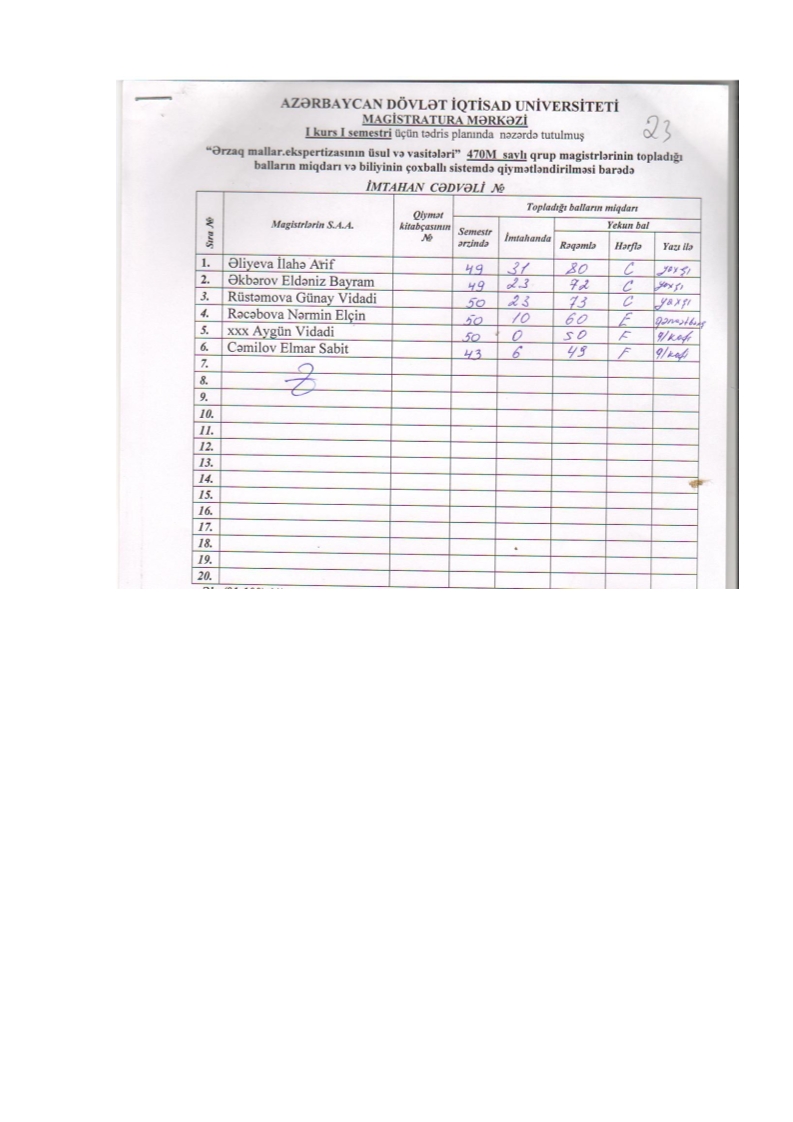 AZƏRBAYCAN DÖVLƏT İQTİSAD UNİVERSİTETİ
MAGİSTRATURA MƏRKƏZİ
23
I kurs I semestri üçün tədris planında nəzərdə tutulmuş
"Ərzaq mallar.ekspertizasının üsul və vasitələri" 470M saylı qrup magistrlərinin topladığı
balların miqdarı və biliyinin çoxballı sistemdə qiymətləndirilməsi barədə
İMTAHAN CƏDVƏLİ №
Sıra № Magistrlərin S.A.A. Qiymət kitabçasının № Topladığı balların miqdarı
Semestr ərzində İmtahanda Yekun bal
Rəqəmlə Hərflə Yazı ilə
1. Əliyeva İlahə Arif 49 31 80 C yaxşı
2. Əkbərov Eldəniz Bayram 49 23 72 C yaxşı
3. Rüstəmova Günay Vidadi 50 23 73 C yaxşı
4. Rəcəbova Nərmin Elçin 50 10 60 E
5. xxx Aygün Vidadi 50 0 50 F q/kafi
6. Cəmilov Elmar Sabit 43 6 49 F q/kafi
7.
8.
9.
10.
11.
12.
13.
14.
15.
16.
17.
18.
19.
20.